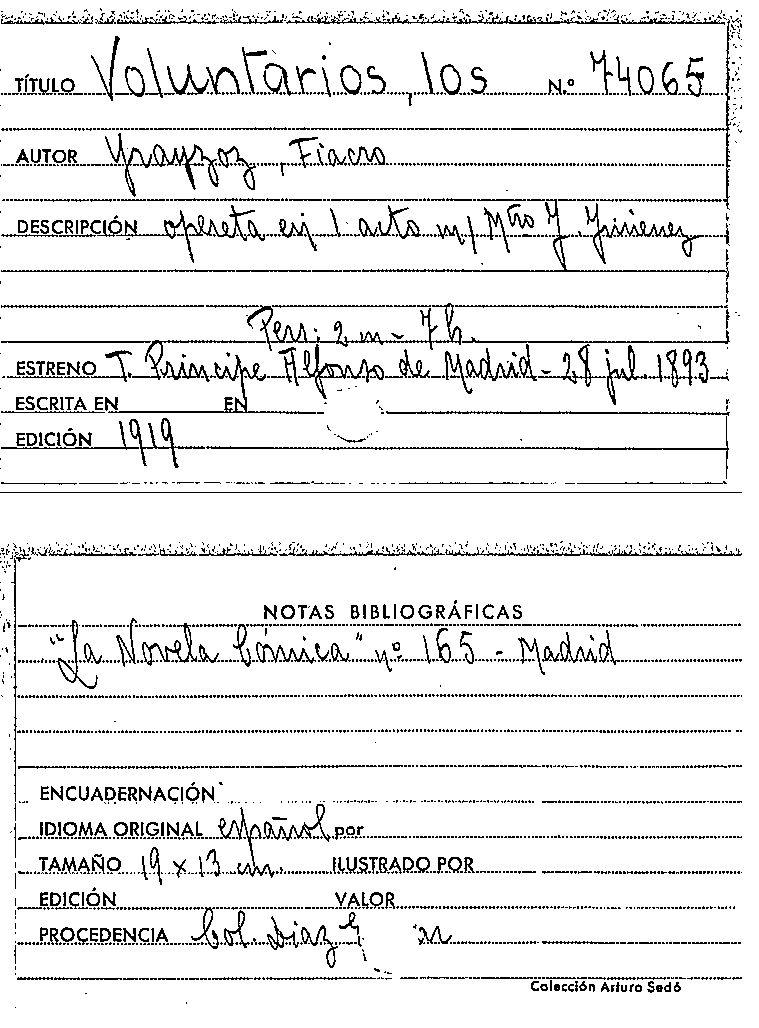 TÍTULO Voluntarios, los N.º 74065
AUTOR Yrayzoz, Fiacro
DESCRIPCIÓN opereta en 1 acto m/ Mtro J. Jimenez
Pers: 2 m - 7 h.
ESTRENO T. Principe Alfonso de Madrid - 28 jul. 1893
ESCRITA EN EN
EDICIÓN 1919
NOTAS BIBLIOGRÁFICAS
"La Novela Cómica" nº 165 - Madrid
ENCUADERNACIÓN
IDIOMA ORIGINAL español por
TAMAÑO 19 x 13 cm. ILUSTRADO POR
EDICIÓN VALOR
PROCEDENCIA Col. Diaz
Colección Arturo Sedó